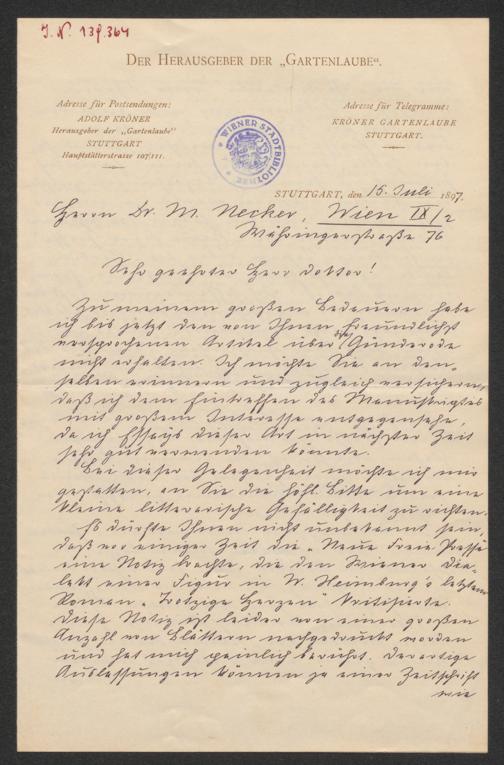 J. N. 139.364
DER HERAUSGEBER DER „GARTENLAUBE“.
Adresse für Postsendungen:
ADOLF KRÖNER
Herausgeber der „Gartenlaube“
STUTTGART
Hauptstätterstrasse 107/111.
WIENER STADTBIBLIOTHEK
Adresse für Telegramme:
KRÖNER GARTENLAUBE
STUTTGART.
STUTTGART, den 15. Juli 1897.
Herrn Dr. M. Necker, Wien IX/2
Währingerstraße 76
Sehr geehrter Herr Doktor!
Zu meinem großen Bedauern habe
ich bis jetzt den von Ihnen freundlichst
versprochenen Artikel über die Günderode
nicht erhalten. Ich möchte Sie an den-
selben erinnern und zugleich versichern,
daß ich dem Eintreffen des Manuskriptes
mit großem Interesse entgegensehe,
da ich Essays dieser Art in nächster Zeit
sehr gut verwenden könnte.
Bei dieser Gelegenheit möchte ich mir
gestatten, an Sie die höfl. Bitte um eine
kleine litterarische Gefälligkeit zu richten.
Es dürfte Ihnen nicht unbekannt sein,
daß vor einiger Zeit die „Neue Freie Presse
eine Notiz brachte, die den Wiener Dia-
lekt einer Figur in W. Heimburg's letztem
Roman „Trotzige Herzen“ kritisierte.
Diese Notiz ist leider von einer großen
Anzahl von Blättern nachgedruckt worden
und hat mich peinlich berührt. Derartige
Auslassungen können ja einer Zeitschrift
wie